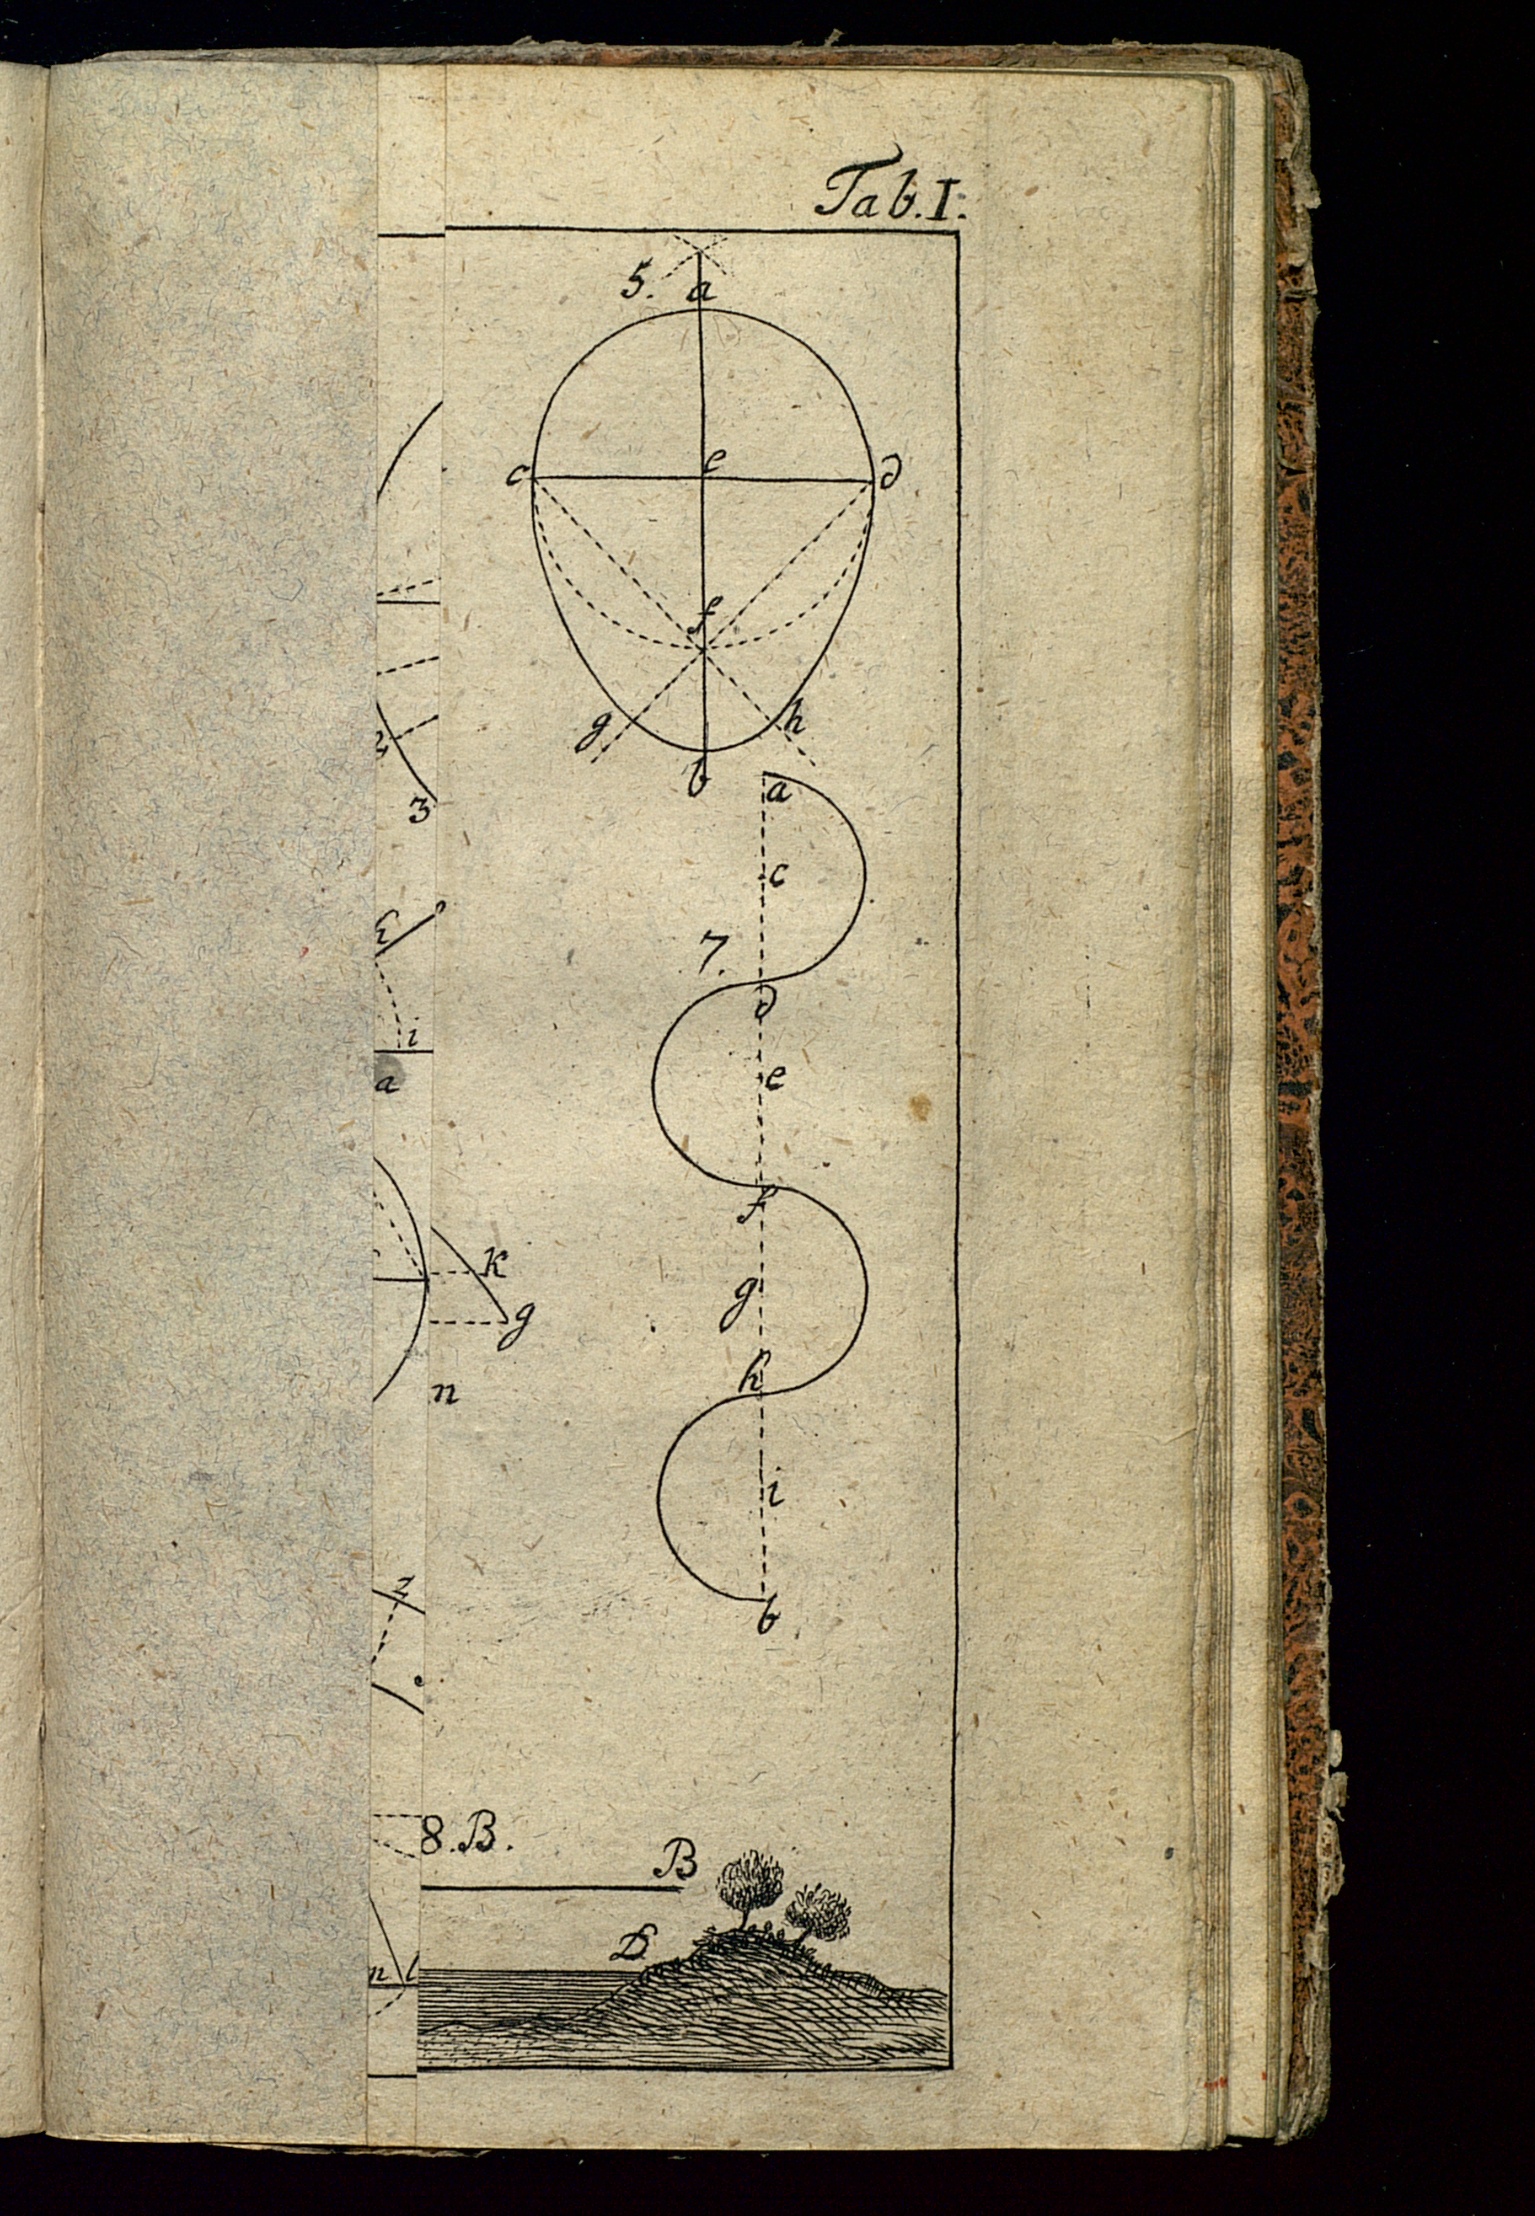 Tab. I.
5. a
c e d
f
g h
b
a
c
7.
d
e
f
g
h
i
b
3
i
a
K
g
n
8. B.
B
D
n l